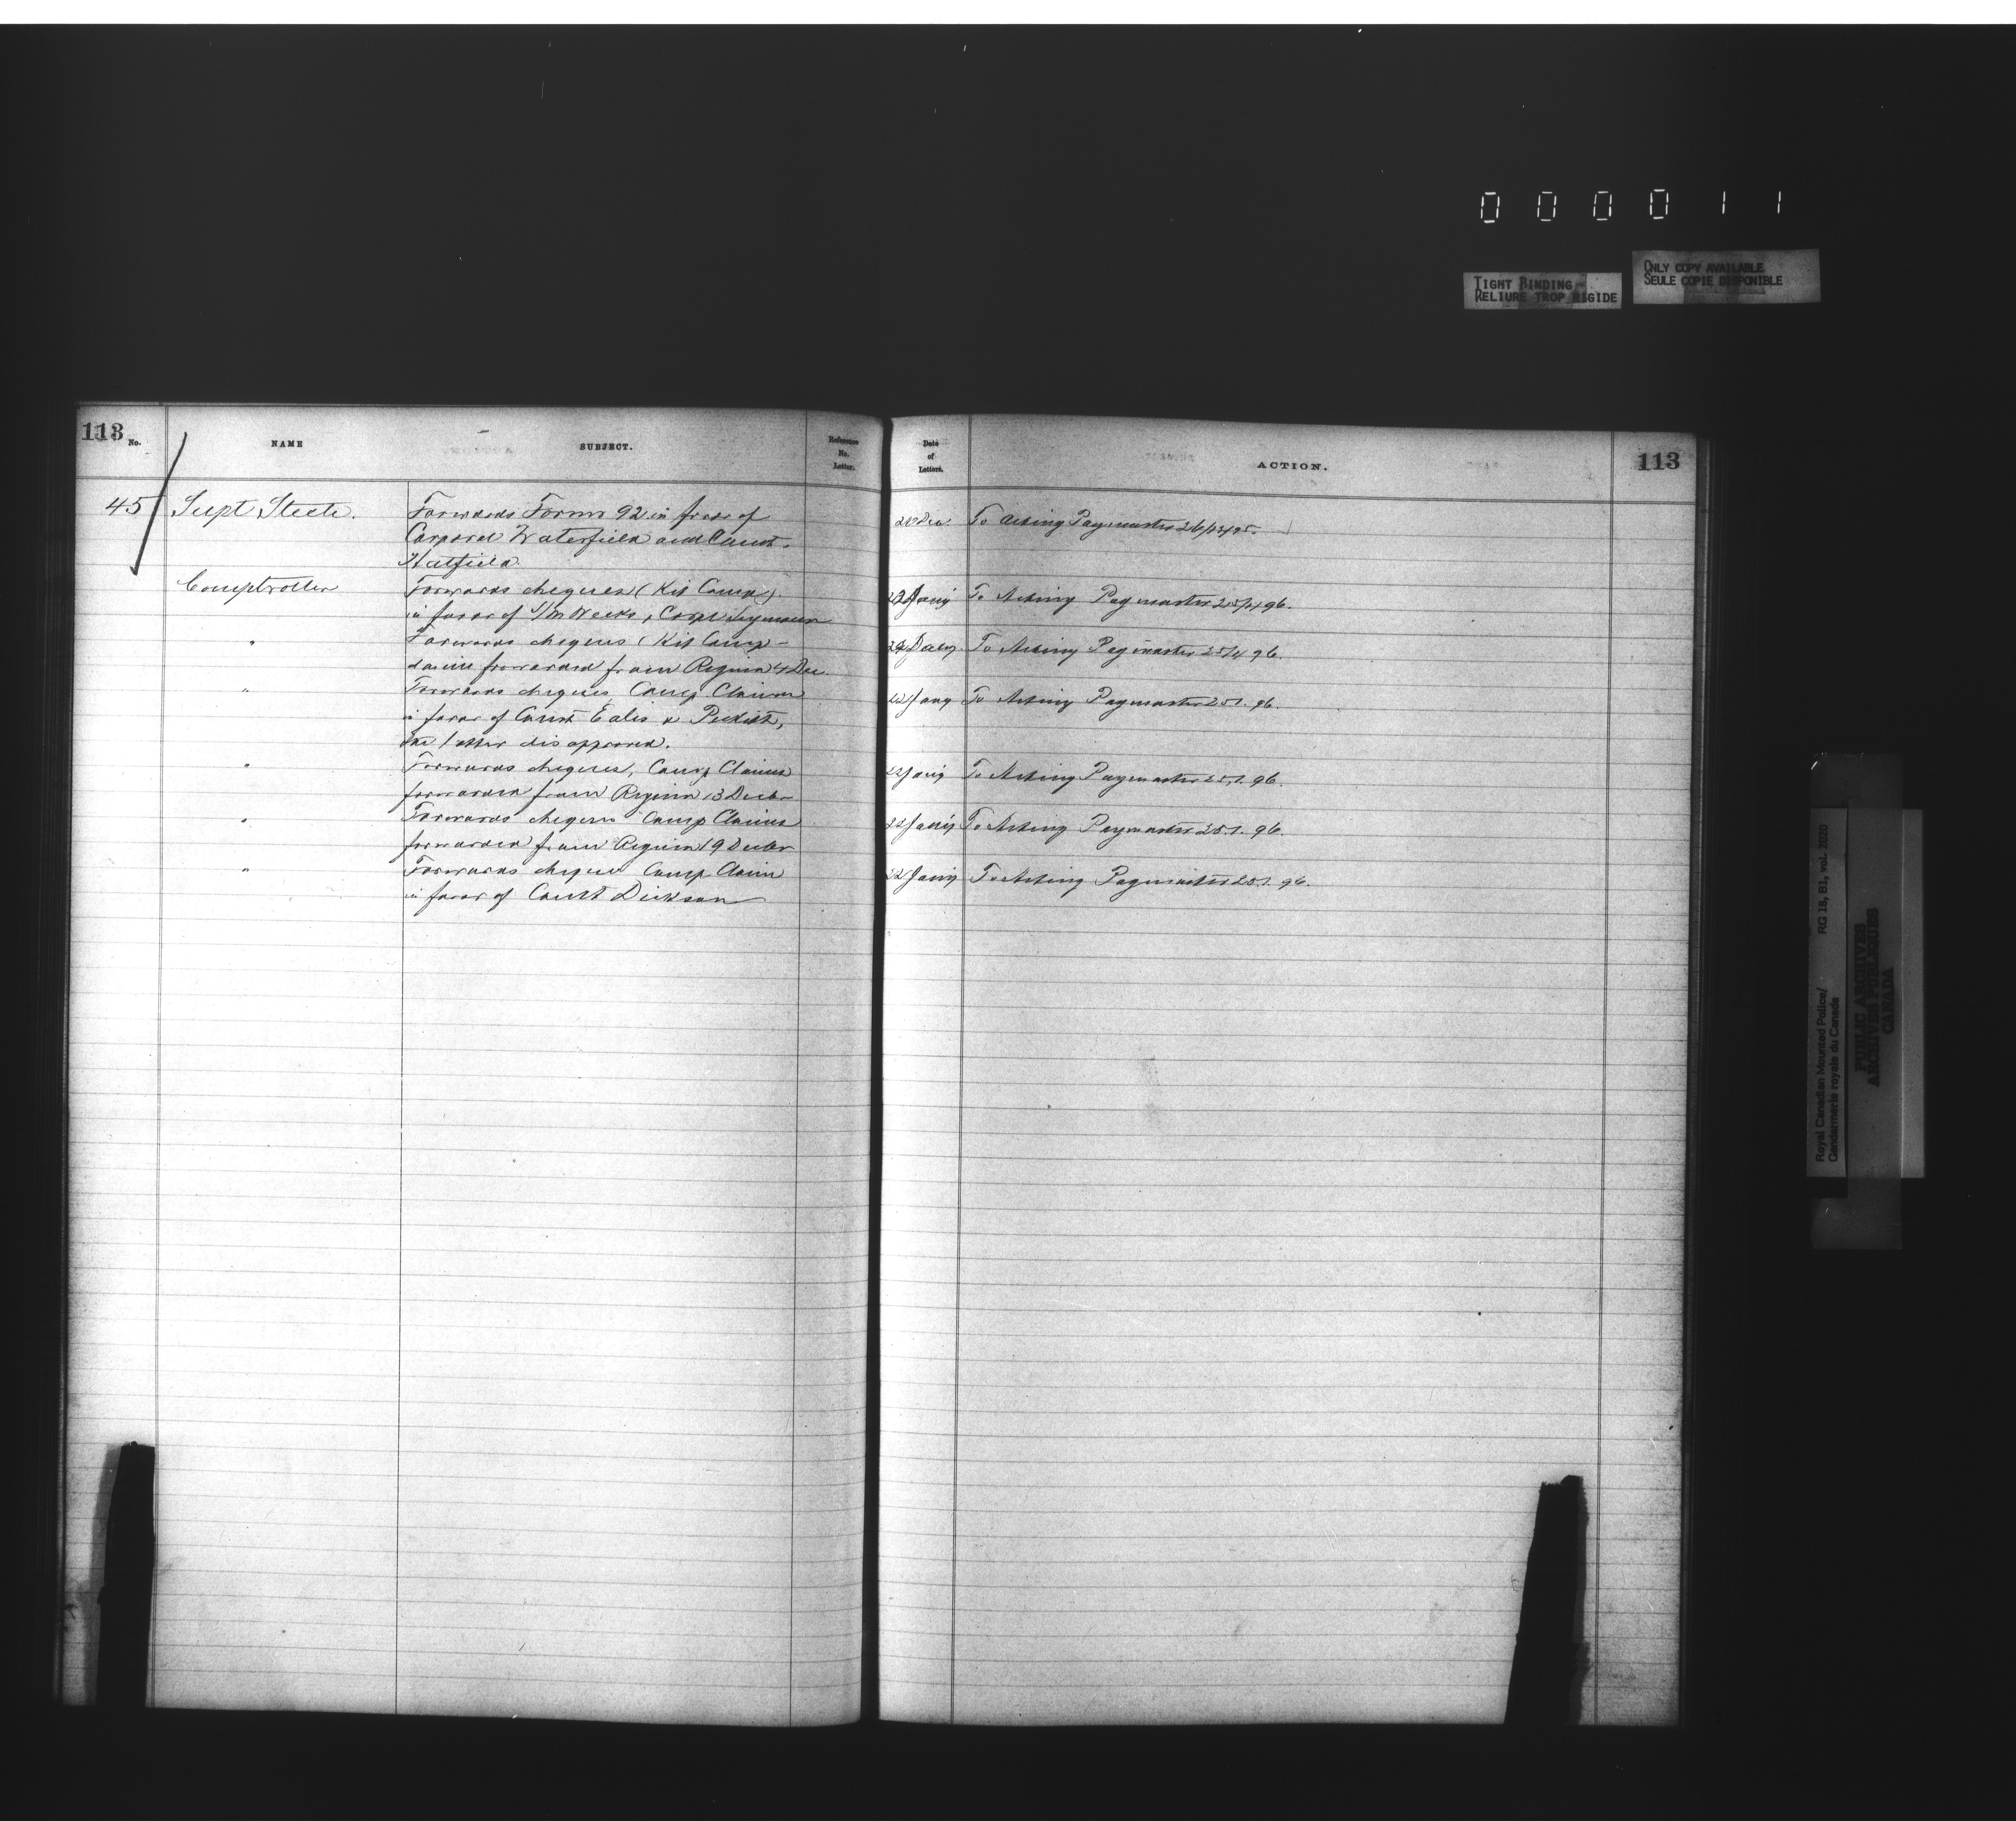 0 0 0 0 1 1
TIGHT BINDING
RELIURE TROP RIGIDE
ONLY COPY AVAILABLE
SEULE COPIE DISPONIBLE
113
No.
NAME
SUBJECT.
Reference
No.
Letter.
Date
of
Letters.
ACTION.
113
45
Supt Steele.
Forwards Forms 92 in favor of
Corporal Waterfield and Const.
Hatfield
20 Dec.
To Acting Paymaster 26/12/95.
Comptroller
Forwards cheques (Kit Comp)
in favor of S/M Weeks, Corpl Seymour
Jany
To Acting Paymaster 25/1/96.
"
Forwards cheques (Kit Comp-
claim forwarded from Regina 4 Dec.
To Acting Paymaster 25/1 96.
"
Forwards cheques, Comp. Claims
in favor of Const
the latter disapproved.
22 Jany
To Acting Paymaster 25.1. 96.
"
Forwards cheques, Comp Claims
forwarded from Regina 13 Decbr
22 Jany
To Acting Paymaster 25.1. 96.
"
Forwards cheques Comp Claims
forwarded from Regina 19 Decbr
22 Jany
To Acting Paymaster 25.1. 96.
"
Forwards cheque Comp. Claim
in favor of Const Dickson
22 Jany
To Acting Paymaster 25.1. 96.
Royal Canadian Mounted Police/
Gendarmerie royale du Canada
RG 18, B1, vol. 2020
PUBLIC ARCHIVES
ARCHIVES PUBLIQUES
CANADA